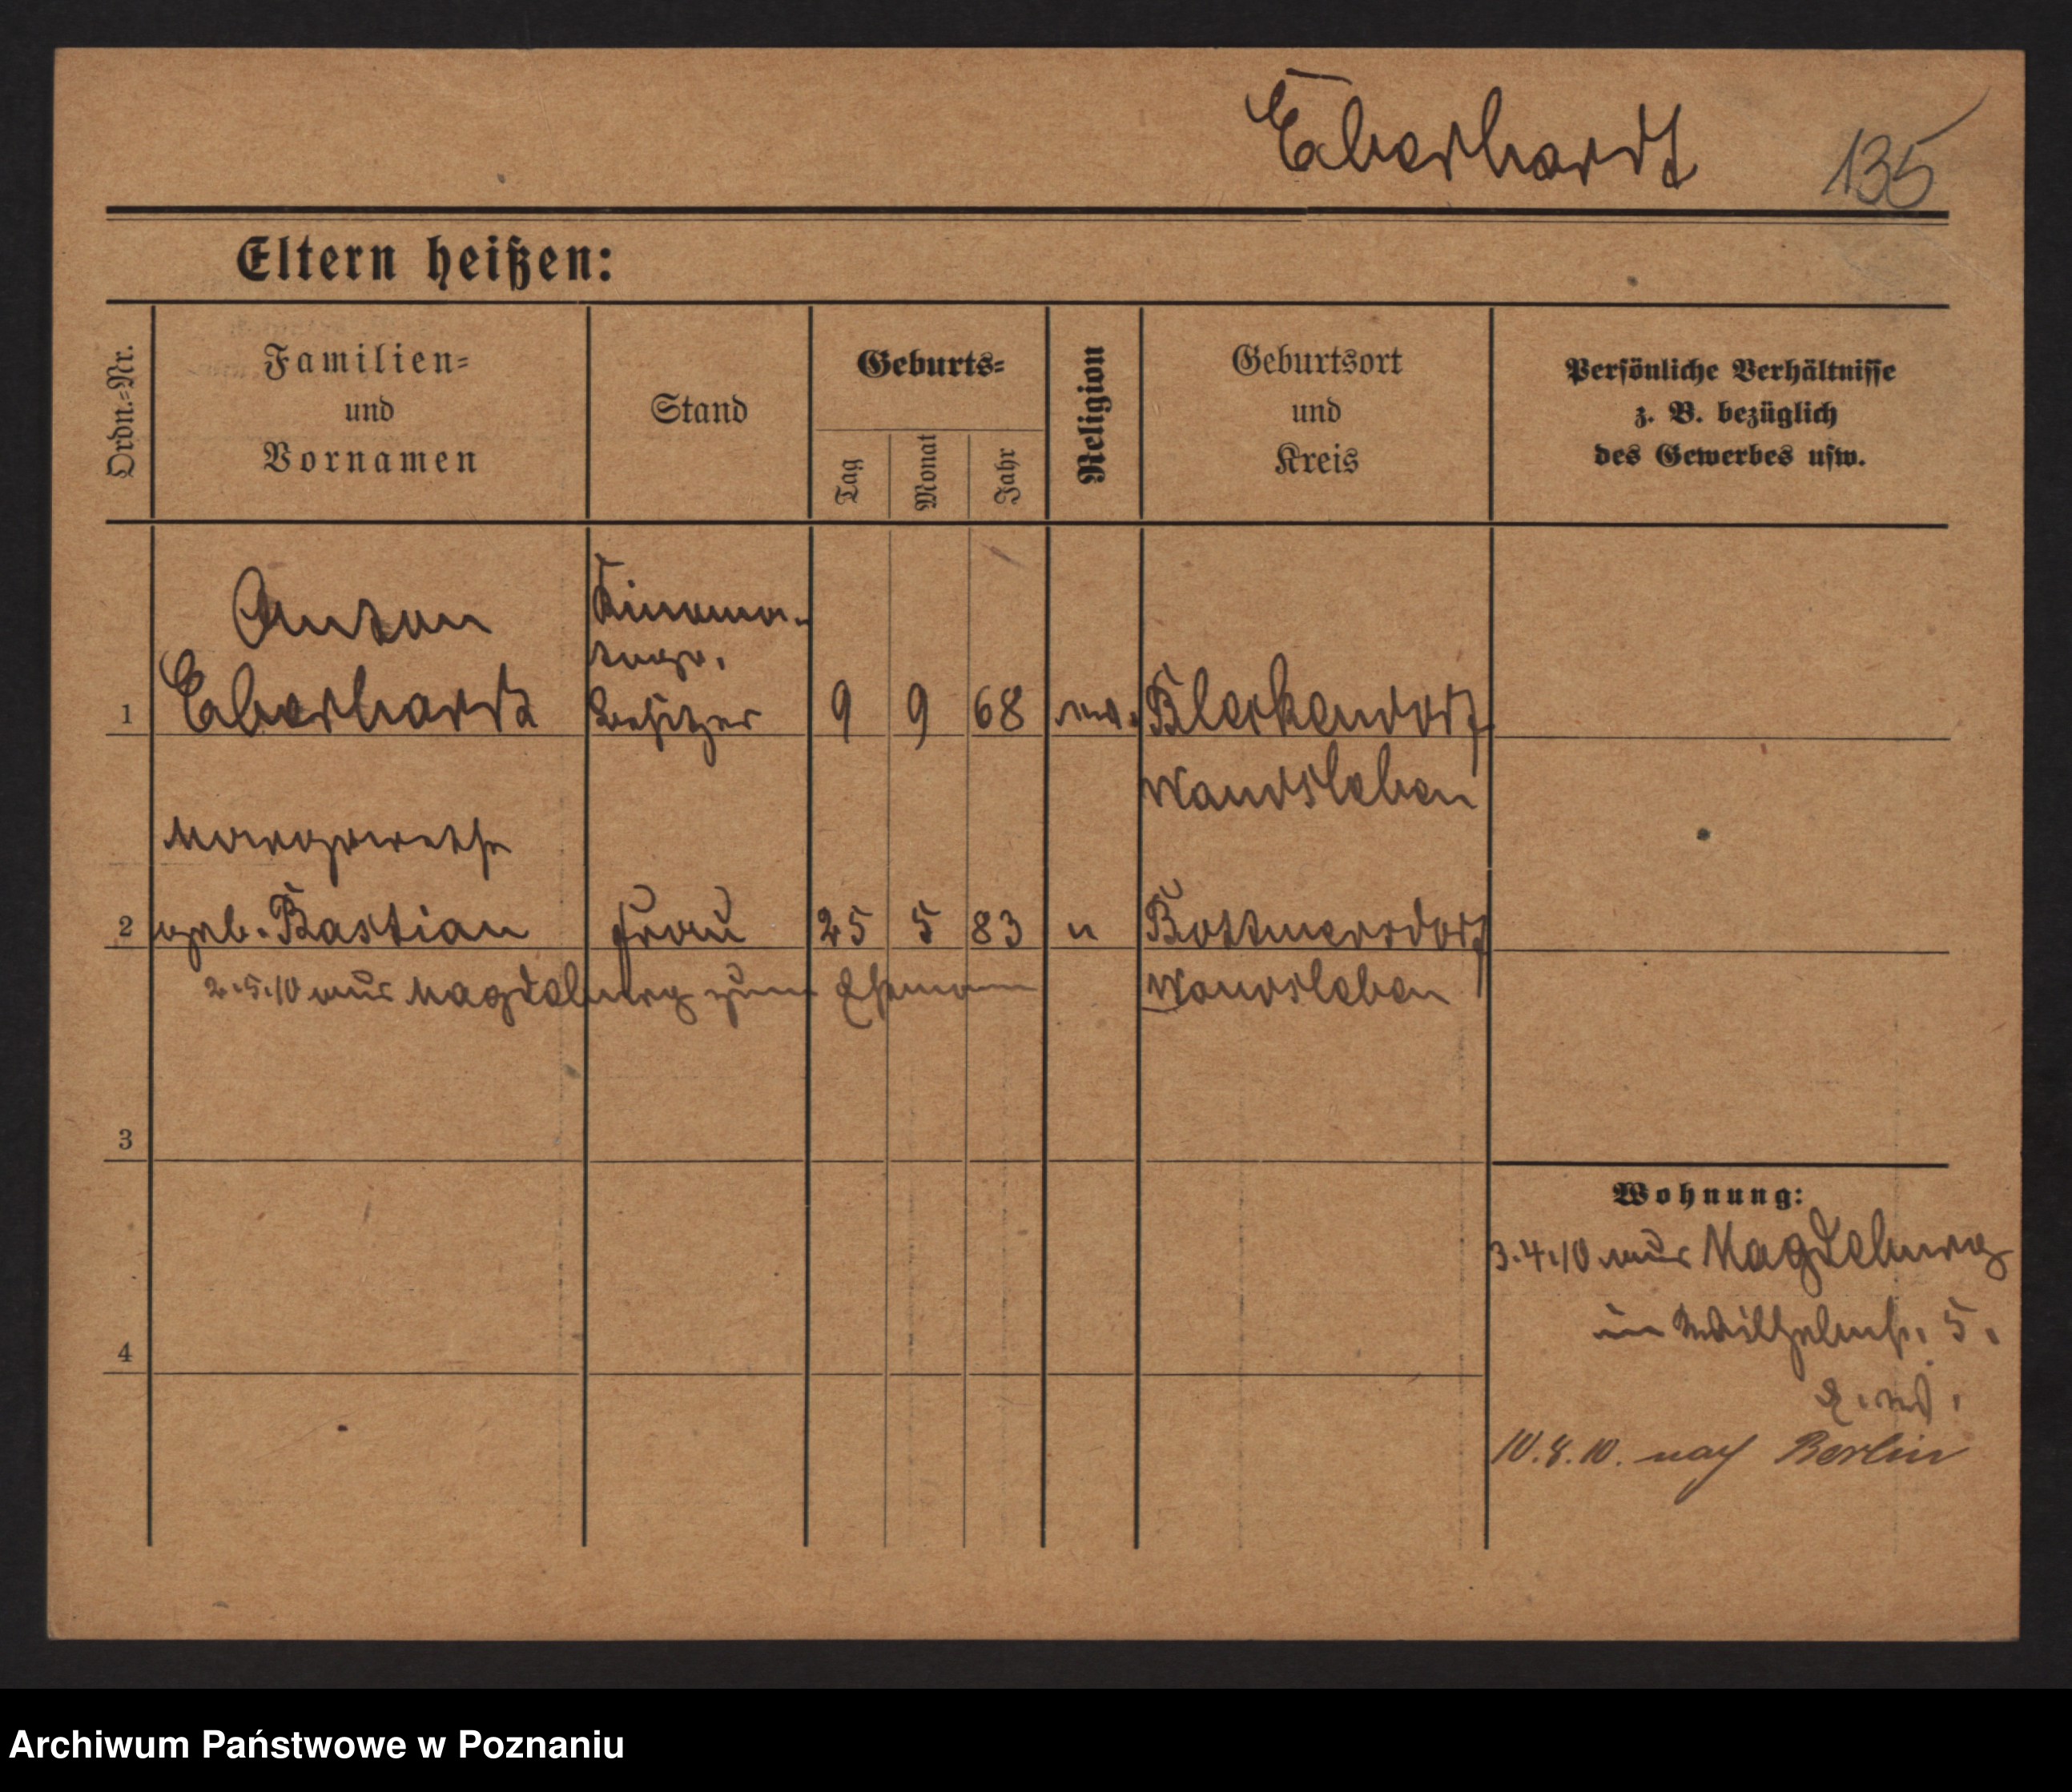 Eberhardt 135
Eltern heißen:
Ordn.=Nr.
Familien=
und
Vornamen
Stand
Geburts=
Tag
Monat
Jahr
Religion
Geburtsort
und
Kreis
Persönliche Verhältnisse
z. B. bezüglich
des Gewerbes usw.
Anton
Kinema-
togr.
1 Eberhardt besitzer 9 9 68 ev. Bleckendorf
Wandsleben
Margarethe
2 geb. Bastian Frau 25 5 83 " Bottmersdorf
2.5.10 aus Magdeburg zum Ehemann Wandsleben
3
Wohnung:
3.4.10 aus Magdeburg
in Wilhelmst. 5.
4
10.8.10. nach Berlin
Archiwum Państwowe w Poznaniu